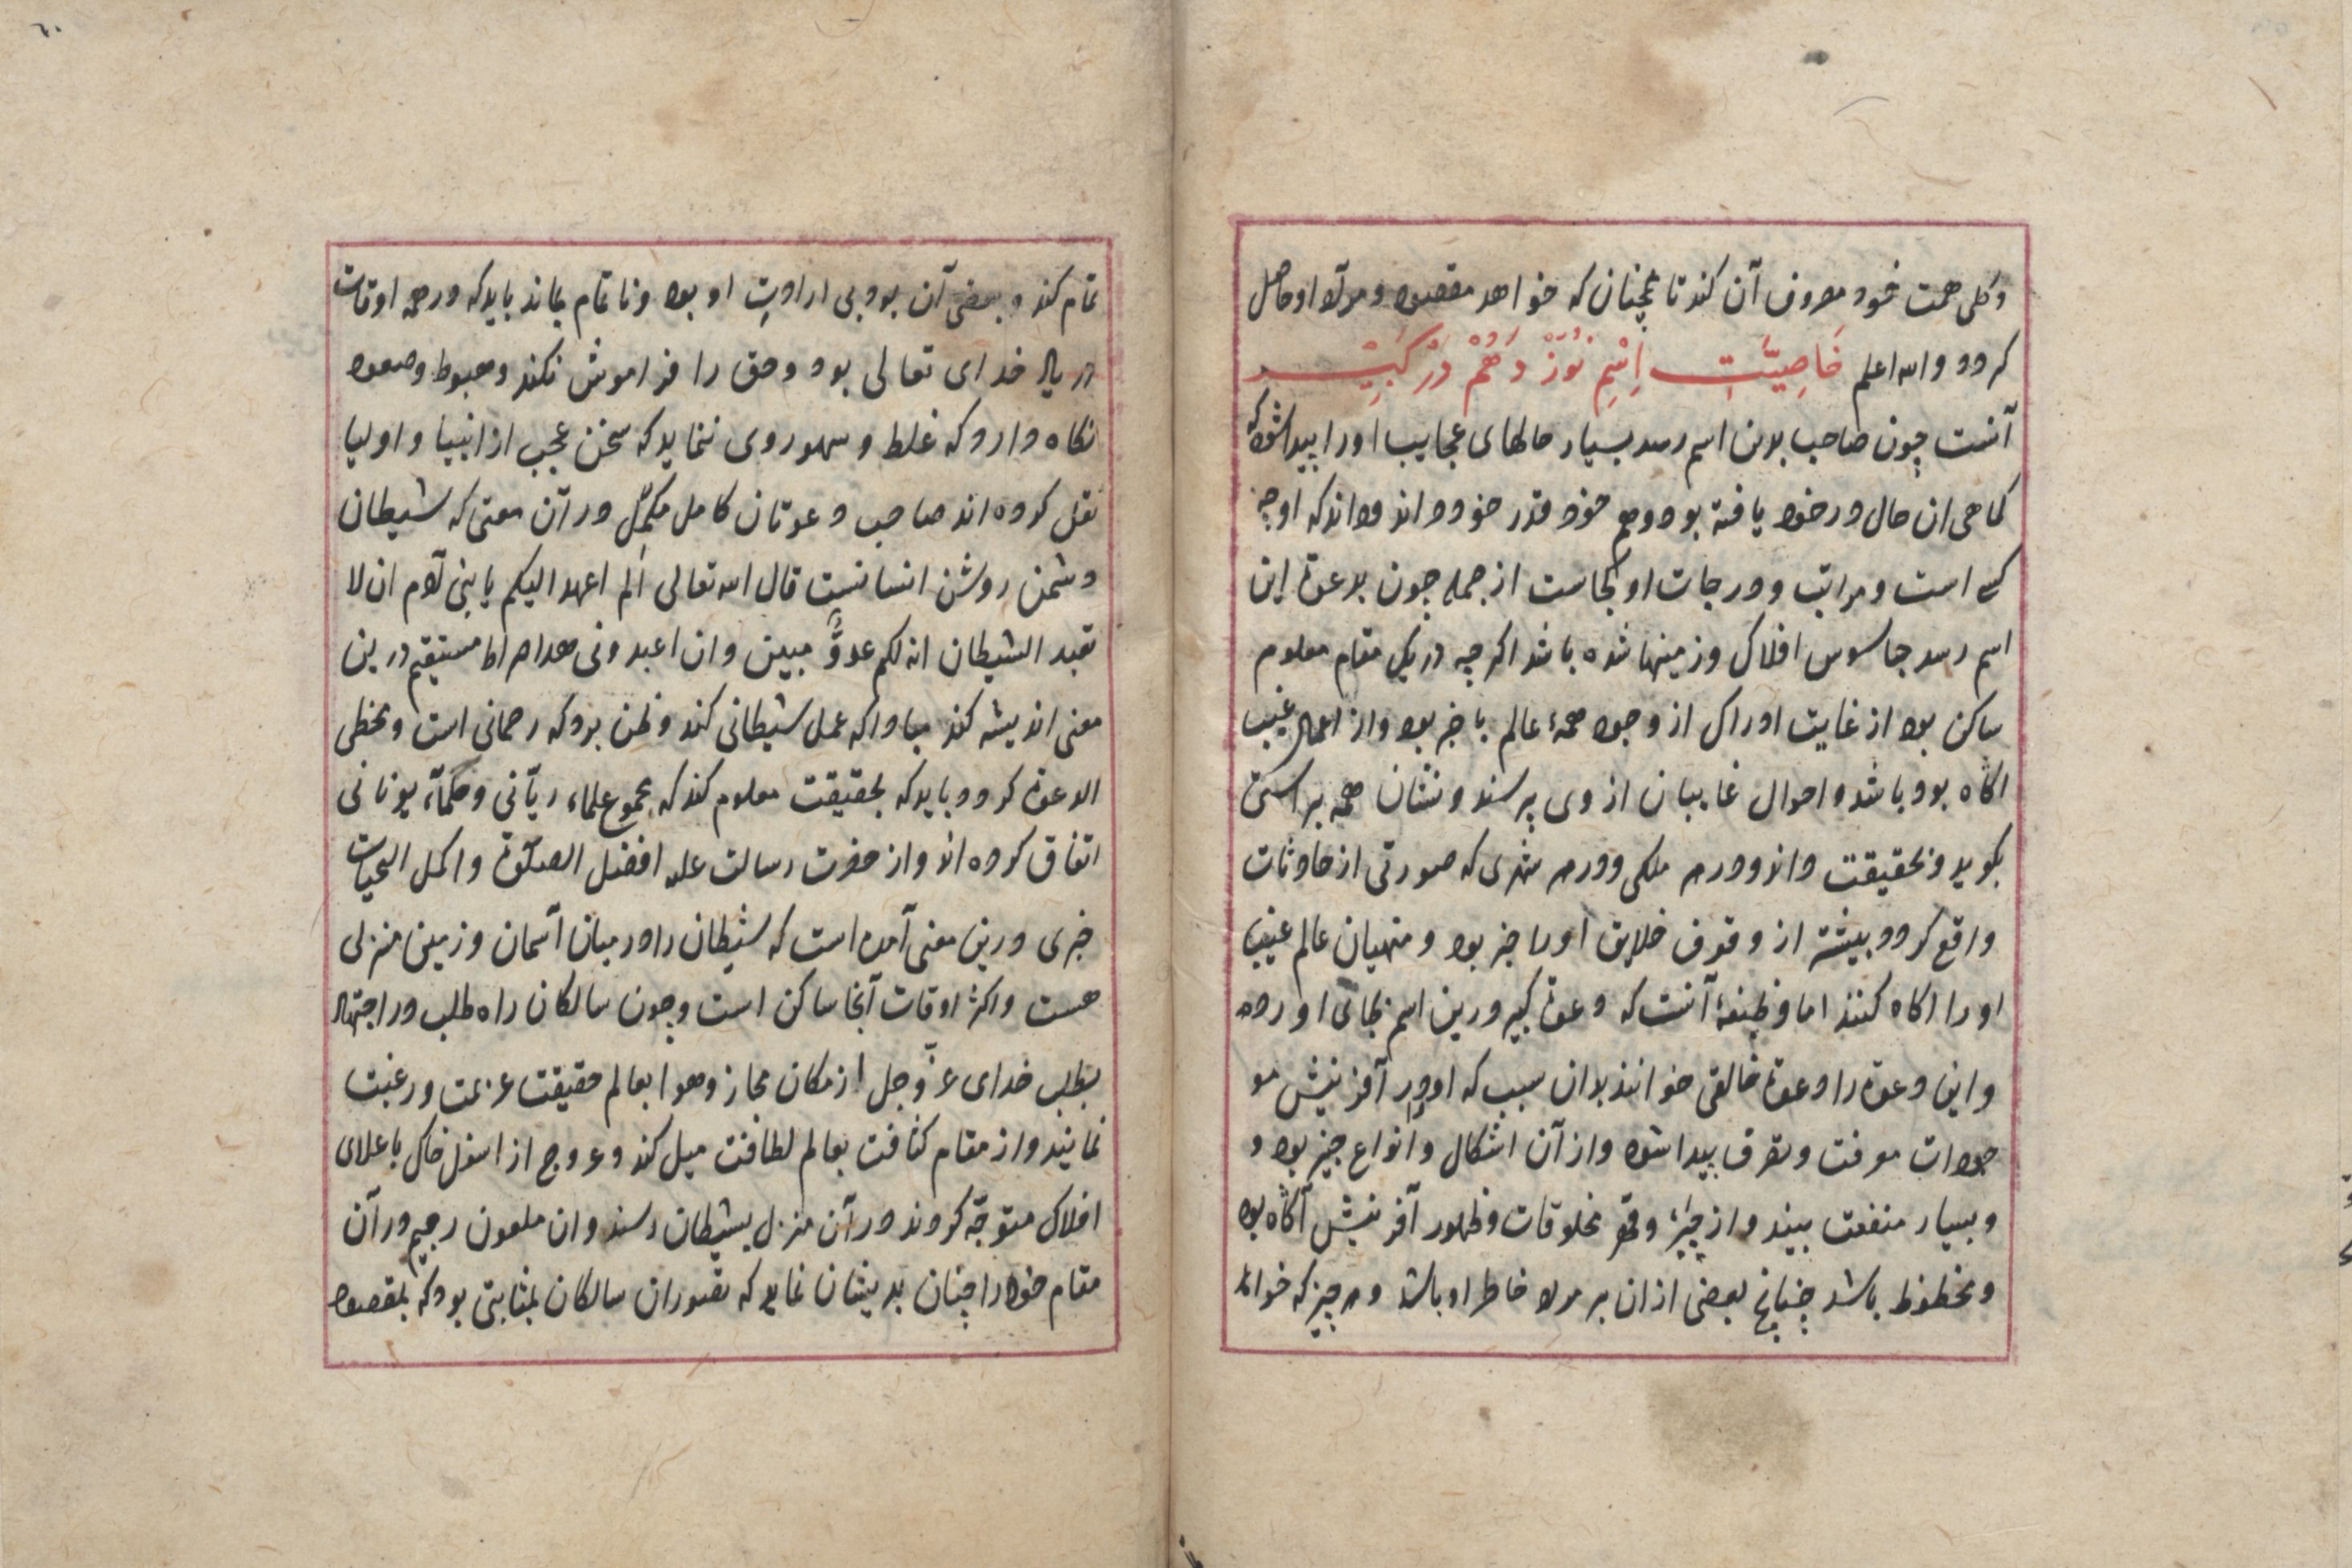 وکلی همت خود مصروف آن کند تا همچنان که خواهد مقصود و مراد او حاصل
کردد والله اعلم خَاصِیَّتِ اِسْمِ نُوزْدَهُمْ دَرْ کَبِیْر
آنست چون صاحب بدین اسم رسد بسیار حالهای عجایب او را پیدا شود که
کماهی ان حال در خود یافته بود وهم خود قدر خود داند وداند که او چه
کس است ومراتب ودرجات او کجاست از جمله چون بدعوة این
اسم رسد جاسوس افلاک وزمینها شده باشد اکرچه در یک مقام معلوم
ساکن بود از غایت ادراک از وجود همهٔ عالم با خبر بود واز احوال غیب
اکاه بود باشد واحوال غایبان از وی پرسند ونشان همه براستی
بکوید وبحقیقت داند ودر هر ملکی ودر هر شهری که صورتی از حادثات
واقع کردد بیشتر از وقوف خلایق او را خبر بود ومنهیان عالم غیب
او را اکاه کنند اما وظیفهٔ آنست که دعوة کبیر درین اسم بجای اورد
واین دعوة را دعوة خالقی خوانند بدان سبب که او در آفرینش مو
جودات معرفت وتصرف پیدا شود واز آن اشکال وانواع چیز بود و
وبسیار منفعت بیند واز چیز وقهر مخلوقات وظهور آفرینش آکاه بود
ومحظوظ باشد چنانچ بعضی ازان بر مراد خاطر او باشد وهر چیز که خواند
٦٠
تمام کند وبعضی آن بود بی ارادت او بود ونا تمام بماند باید که در همه اوقات
در یاد خدای تعالی بود وحق را فراموش نکند وهبوط وصعود
نکاه دارد که غلط وسهو روی ننماید که سخن عجب از انبیا واولیا
نقل کرده اند صاحب دعوتان کامل مکمّل در آن معنی که شیطان
دشمن روشن انسانست قال الله تعالی الم اعهد الیکم یا بنی آدم ان لا
تعبد الشیطان انه لکم عدوٌّ مبین وان اعبدونی هذا صراط مستقیم درین
معنی اندیشه کند مبادا که عمل شیطانی کند وظن برد که رحمانی است ومخطی
الدعوة کردد وباید که بحقیقت معلوم کند که مجموع علماء ربّانی وحکمآء یونانی
اتفاق کرده اند واز حضرت رسالت علیه افضل الصلوة واکمل التحیات
خبری درین معنی آمده است که شیطان را در میان آسمان وزمین منزلی
هست واکثر اوقات آنجا ساکن است وچون سالکان راه طلب در اجتهاد
بطلب خدای عزّ وجل از مکان مجاز وهوا بعالم حقیقت عزیمت ورغبت
نمایند واز مقام کثافت بعالم لطافت میل کند وعروج از اسفل خاک باعلای
افلاک متوجّه کردند در آن منزل بشیطان رسند وان ملعون رجیم در آن
مقام خود را چنان بدیشان نماید که تصوران سالکان بمثابتی بود که بمقصود